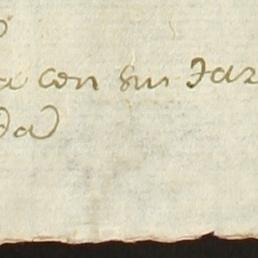 a con sus Jar
da